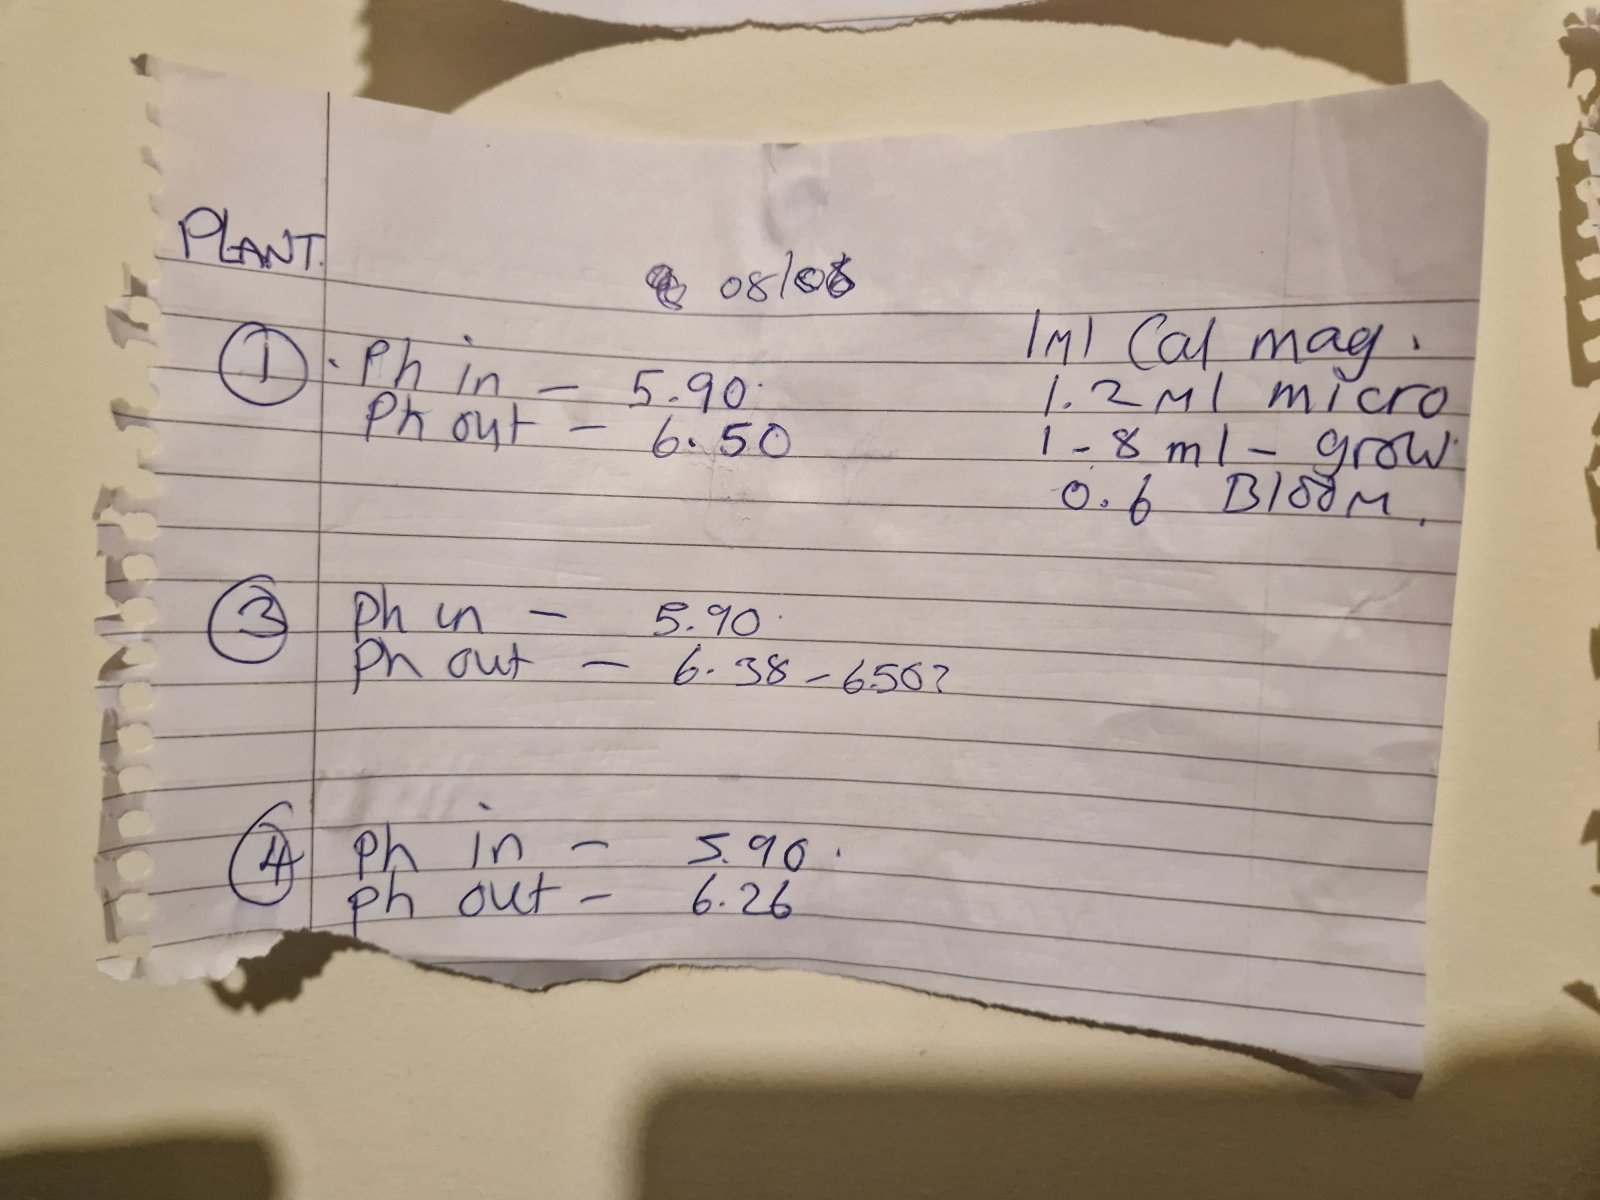 PLANT.
08/08
① . Ph in - 5.90.
Ph out - 6.50
1Ml Cal mag.
1.2 Ml micro
1-8 ml - grow
0.6 Bloom.
③ Ph in - 5.90.
Ph out - 6.38 - 650?
④ Ph in - 5.90.
Ph out - 6.26